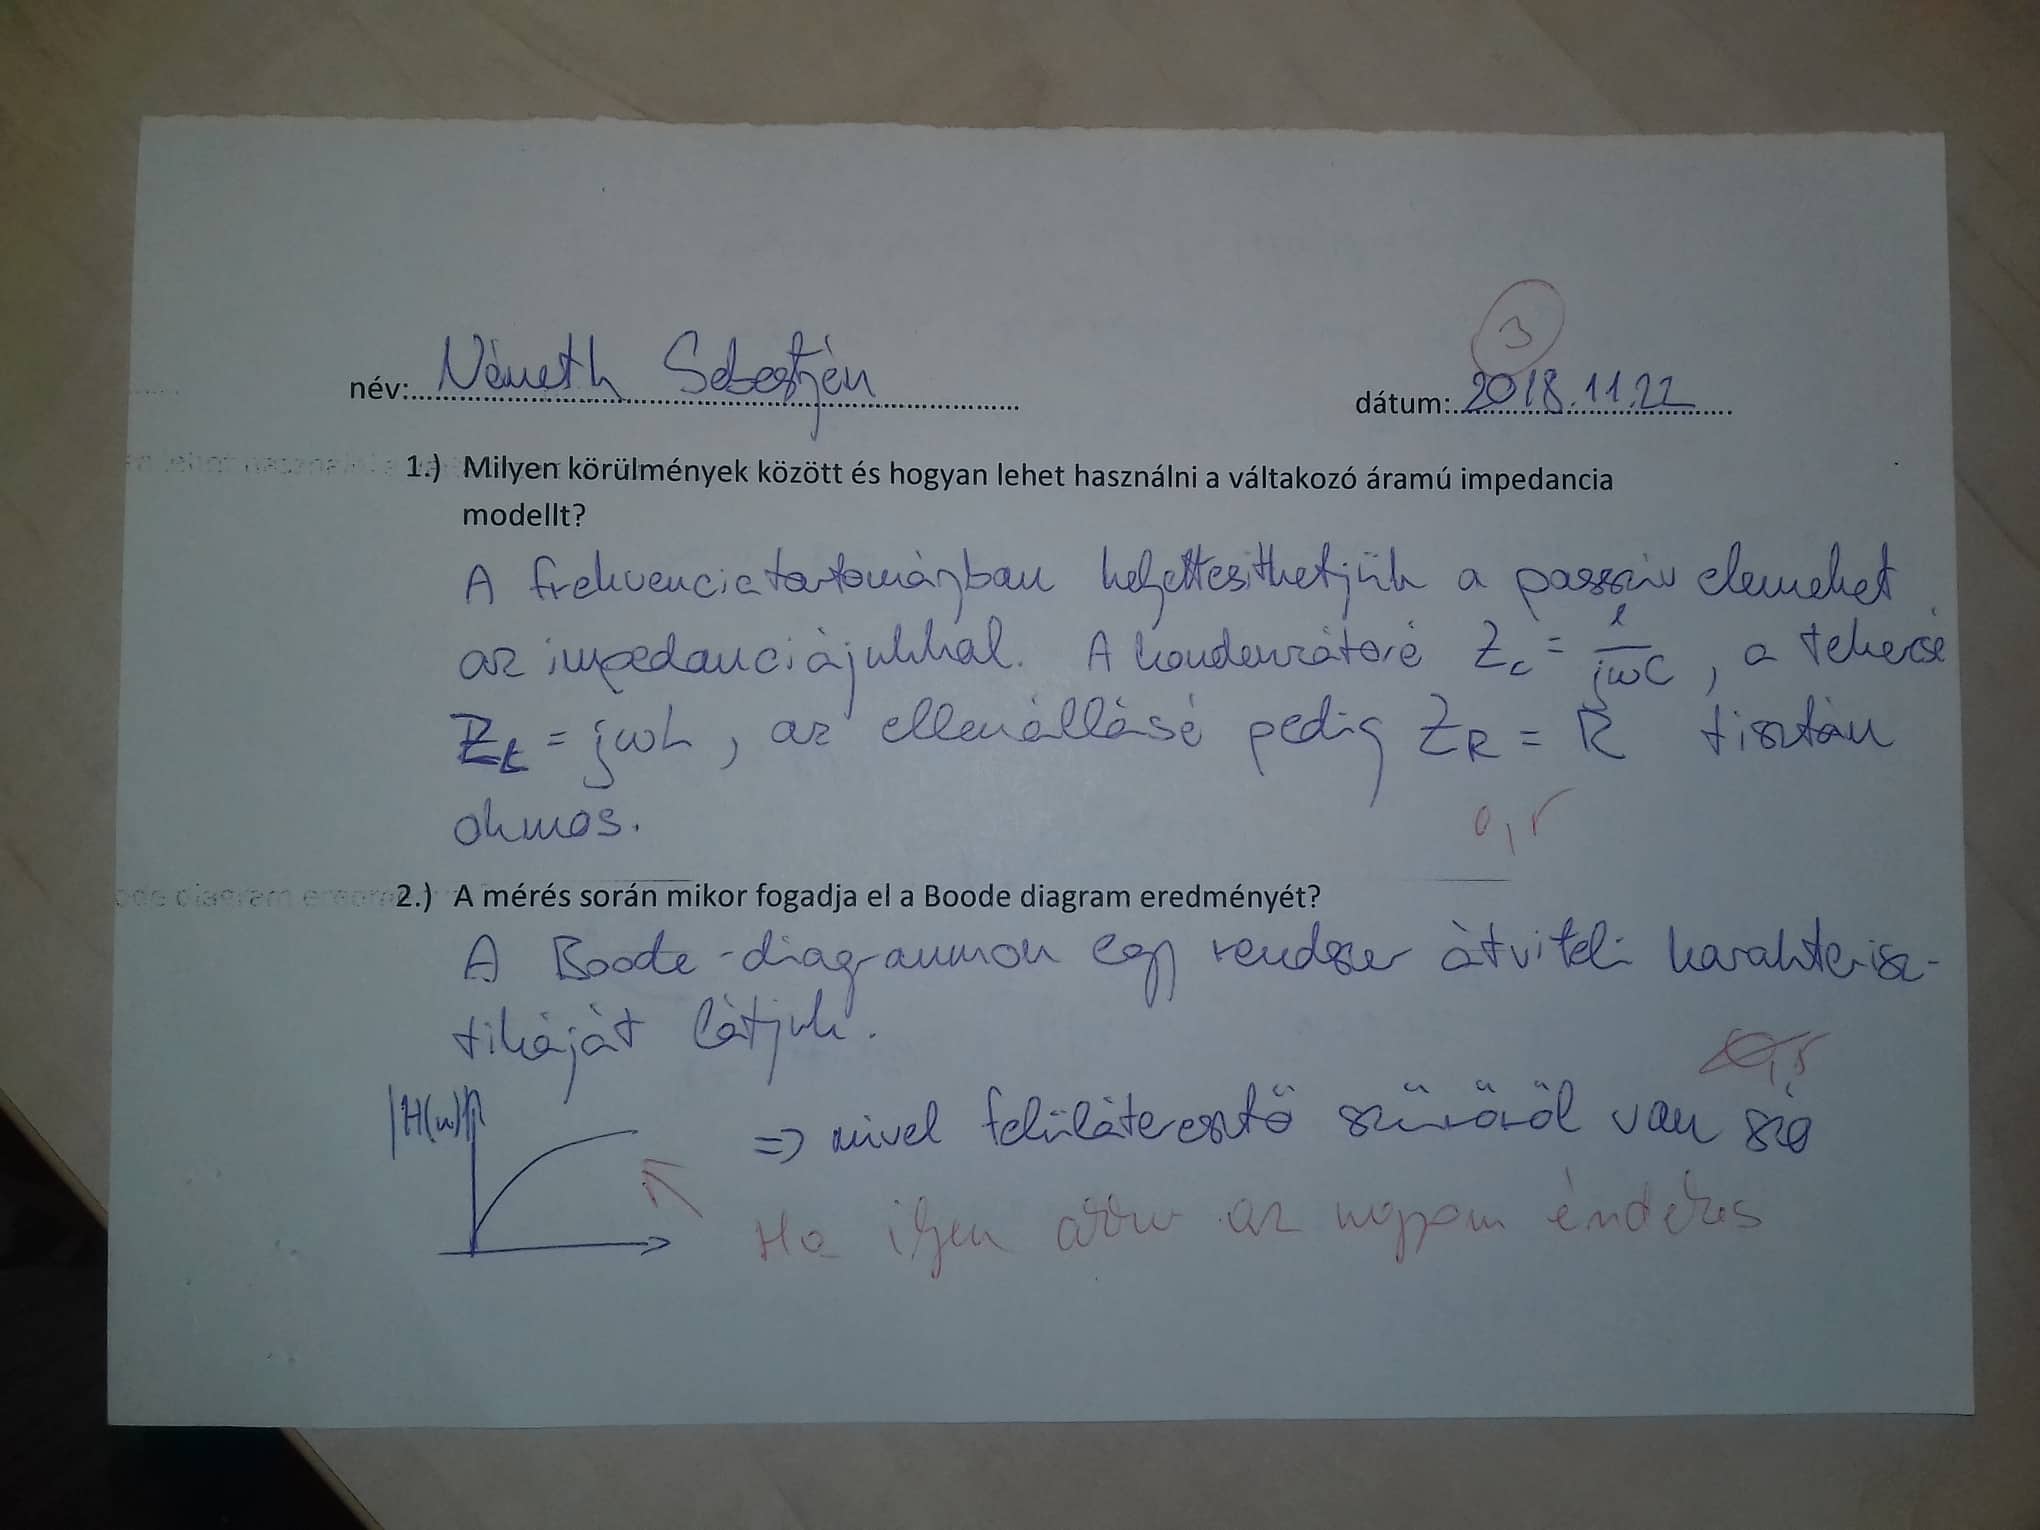 3
név: Németh Sebestyén dátum: 2018.11.22
1.) Milyen körülmények között és hogyan lehet használni a váltakozó áramú impedancia
modellt?
A frekvenciatartományban helyettesíthetjük a passzív elemeket
az impedanciájukkal. A kondenzátoré Zc = 1/jωC, a tekercsé
ZL = jωL, az ellenállásé pedig ZR = R tisztán
ohmos.
0,5
2.) A mérés során mikor fogadja el a Boode diagram eredményét?
A Boode-diagrammon egy rendszer átviteli karakterisz-
tikáját látjuk.
0,5
|H(ω)| => mivel felüláteresztő szűrőről van szó
Ha ilyen az nagyon érdekes